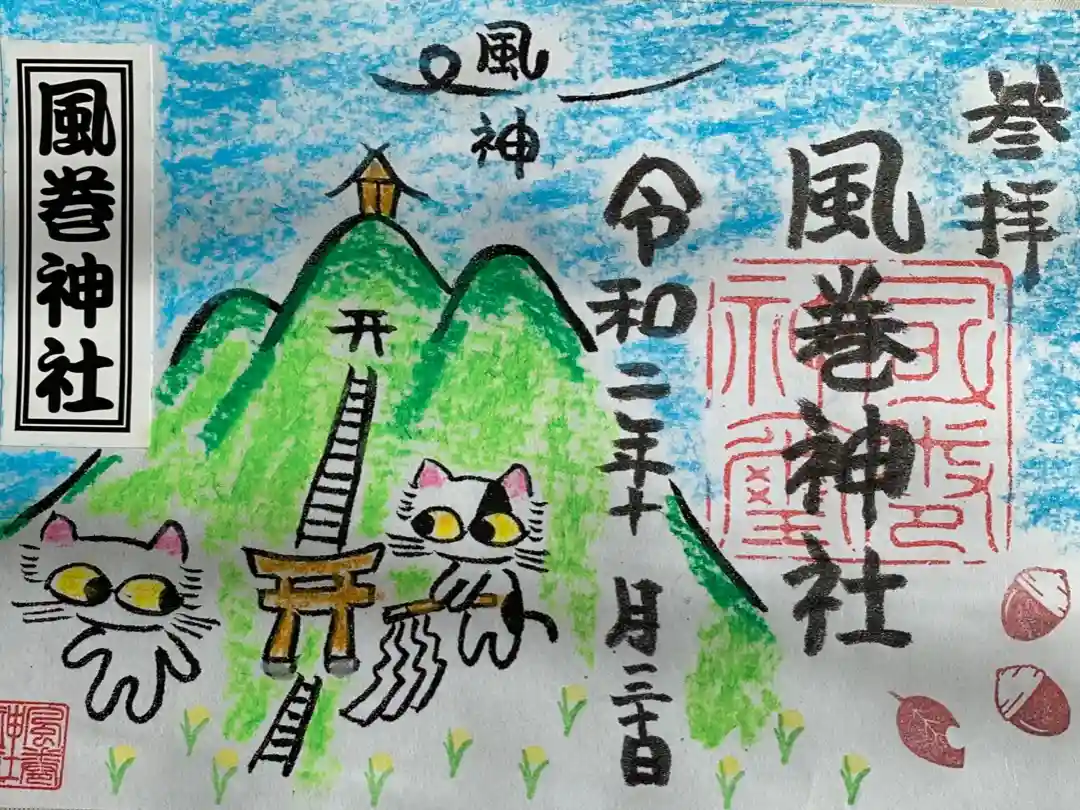 参拝
風巻神社
令和二年十月三十日
風神
風巻神社
風巻神社